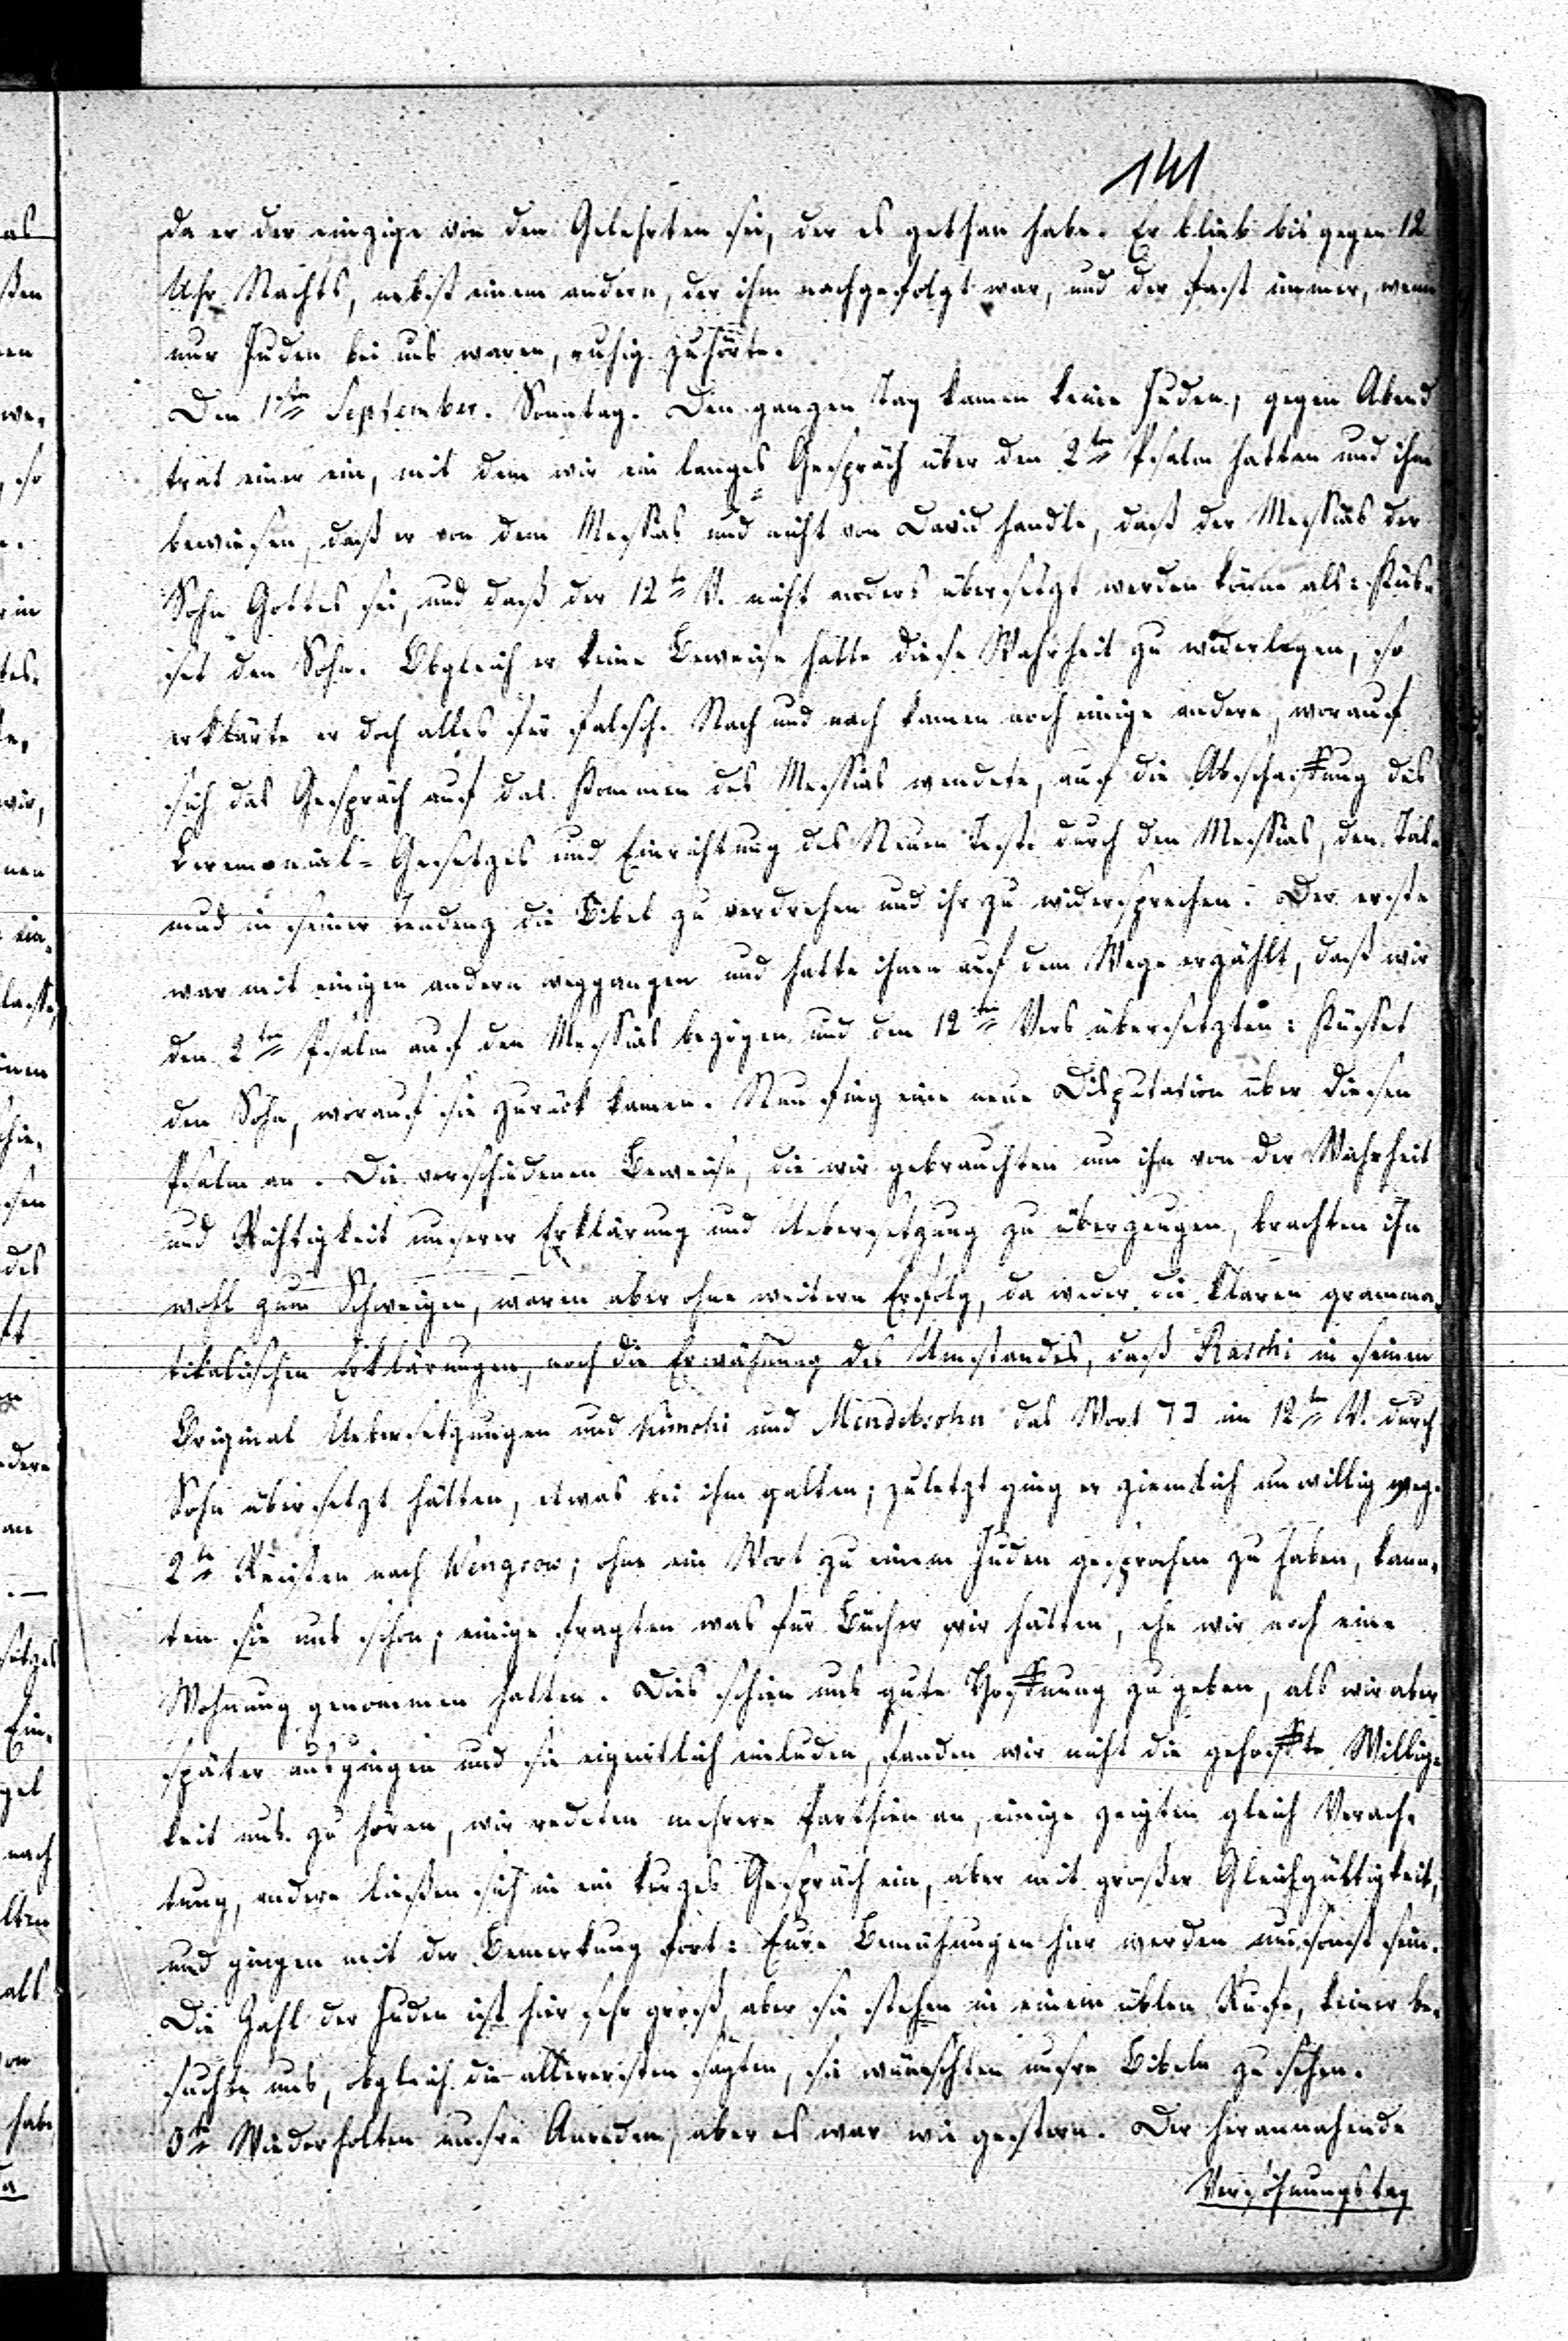 141
da er der einzige von den Gelehrten sei, der es gethan habe. Er blieb bis gegen 12
Uhr Nachts, nebst einem andern, der ihm nachgefolgt war, und der fast immer, wenn
nur Juden bei uns waren, ruhig zuhörte.
Den 1sten September. Sonntag. Den ganzen Tag kamen keine Juden, gegen Abend
trat einer ein, mit dem wir ein langes Gespräch über den 2ten Psalm hatten und ihm
bewiesen, daß er von dem Messias und nicht von David handle, daß der Messias der
Sohn Gottes sei, und daß der 12te V. nicht anders übersetzt werden könne als: Küs-
set den Sohn. Obgleich er keine Beweise hatte diese Wahrheit zu widerlegen, so
erklärte er doch alles für falsch. Nach und nach kamen noch einige andere, worauf
sich das Gespräch auf das Kommen des Messias wendete, auf die Abschaffung des
Ceremonial-Gesetzes und Einrichtung des Neuen Test. durch den Messias, den Tal-
mud in seiner Tendenz die Bibel zu verdrehen und ihr zu widersprechen. Der erste
war mit einigen andern weggangen und hatte ihnen auf dem Wege erzählt, daß wir
den 2ten Psalm auf den Messias bezögen und den 12ten Vers übersetzten: Küsset
den Sohn, worauf sie zurück kamen. Nun fing eine neue Disputation über diesen
Psalm an. Die verschiedenen Beweise, die wir gebrauchten um ihn von der Wahrheit
und Richtigkeit unserer Erklärung und Uebersetzung zu überzeugen, brachten ihn
wohl zum Schweigen, waren aber ohne weitern Erfolg, da weder die klaren gramma-
tikalischen Erklärungen, noch die Erwähnung des Umstandes, daß Raschi in seinen
Original Uebersetzungen und Kimchi und Mendelsohn das Wort בר im 12ten V. durch
Sohn übersetzt hätten, etwas bei ihm galten; zuletzt ging er ziemlich unwillig weg.
2te Reisten nach Wengrow; ohne ein Wort zu einem Juden gesprochen zu haben, kann-
ten sie uns schon; einige fragten was für Bücher wir hätten, ehe wir noch eine
Wohnung genommen hatten. Dies schien uns gute Hoffnung zu geben, als wir aber
später ausgingen und sie eigentlich einluden, fanden wir nicht die gehoffte Willig-
keit uns zu hören, wir redeten mehrere Parthien an, einige zeigten gleich Verach-
tung, andere ließen sich in ein kurzes Gespräch ein, aber mit großer Gleichgültigkeit,
und gingen mit der Bemerkung fort: Eure Bemühungen hier werden umsonst sein.
Die Zahl der Juden ist hier sehr groß, aber sie stehen in einem üblen Rufe, keiner be-
suchte uns, obgleich die allerersten sagten, sie wünschten unsre Bibeln zu sehen.
3te Wiederholten unsre Anreden, aber es war wie gestern. Der herannahende
Versöhnungstag